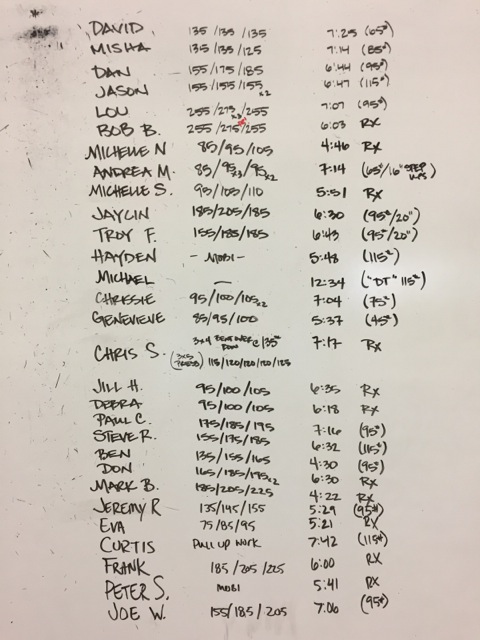 DAVID 135/135/135 7:25 (65#)
MISHA 135/135/125 7:14 (85#)
DAN 155/175/185 6:44 (95#)
JASON 155/155/155x2 6:47 (115#)
LOU 255/275x3/255 7:07 (95#)
BOB B. 255/275/255 6:03 RX
MICHELLE N 85/95/105 4:46 RX
ANDREA M. 85/95x3/95x2 7:14 (65#/16" STEP UPS)
MICHELLE S. 95/105/110 5:51 RX
JAYLIN 185/205/185 6:30 (95#/20")
TROY F. 155/185/185 6:43 (95#/20")
HAYDEN - MOBI - 5:48 (115#)
MICHAEL — 12:34 ("DT" 115#)
CHRISSIE 95/100/105x2 7:04 (75#)
GENEVIEVE 85/95/100 5:37 (45#)
3x4 BENT OVER ROW @135#
CHRIS S. (3x5 PRESS) 115/120/120/120/125 7:17 RX
JILL H. 95/100/105 6:35 RX
DEBRA 95/100/105 6:18 RX
PAUL C. 175/185/195 7:16 (95#)
STEVE R. 155/175/185 6:32 (115#)
BEN 135/155/165 4:30 (95#)
DON 165/185/195x2 6:30 RX
MARK B. 185/205/225 4:22 RX
JEREMY R 135/145/155 5:29 (95#)
EVA 75/85/95 5:21 RX
CURTIS PULL UP WORK 7:42 (115#)
FRANK 185/205/225 6:00 RX
PETER S. MOBI 5:41 RX
JOE W. 155/185/205 7:06 (95#)